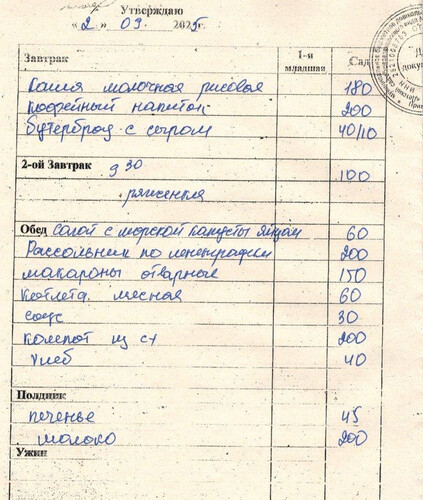 Утверждаю
« 2 » 09 2025
Завтрак 1-я младшая Сад
Каша молочная рисовая 180
Кофейный напиток 200
Бутерброд с сыром 40/10
2-ой Завтрак 9 30 100
ряженка
Обед Салат с морской капусты яйцом 60
Рассольник по ленинградски 200
макароны отварные 150
Котлета мясная 60
соус 30
Компот из с/ф 200
хлеб 40
Полдник
печенье 45
молоко 200
Ужин